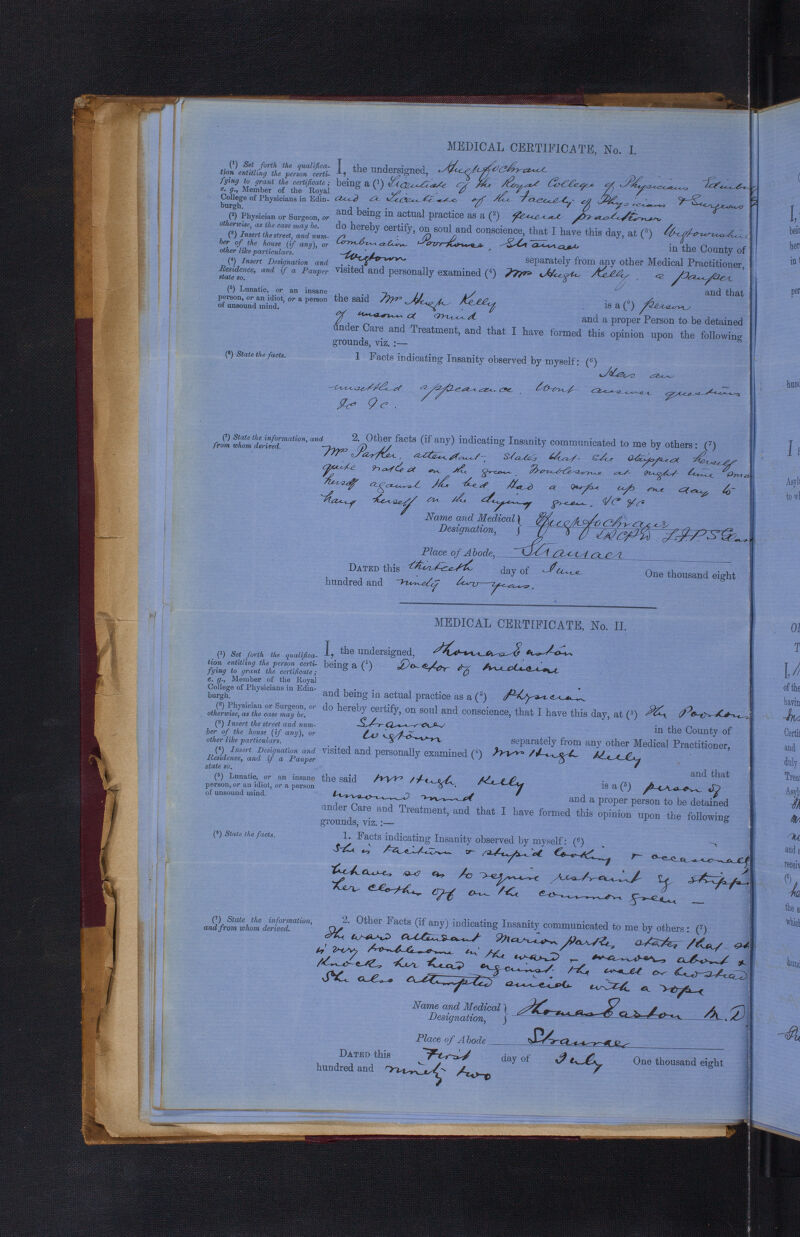 MEDICAL CERTIFICATE, No. I.
(¹) Set forth the qualifica-
tion entitling the person certi-
fying to grant the certificate;
e. g., Member of the Royal
College of Physicians in Edin-
burgh.
(²) Physician or Surgeon, or
otherwise, as the case may be.
(³) Insert the street, and num-
ber of the house (if any), or
other like particulars.
(⁴) Insert Designation and
Residence, and if a Pauper
state so.
(⁵) Lunatic, or an insane
person, or an idiot, or a person
of unsound mind.
(⁶) State the facts.
(⁷) State the information, and
from whom derived.
I, the undersigned, Hugh Lochrane
being a (¹) Licentiate of the Royal College of Physicians Edinbur
and a Licentiate of the Faculty of Physicians & Surgeons
and being in actual practice as a (²) general practitioner
do hereby certify, on soul and conscience, that I have this day, at (³) Wigtownshire
Combination Poorhouse, Stranraer in the County of
Wigtown separately from any other Medical Practitioner,
visited and personally examined (⁴) Mrs Hugh Kelly. a pauper
and that
the said Mrs Hugh Kelly is a (⁵) person
of unsound mind and a proper Person to be detained
under Care and Treatment, and that I have formed this opinion upon the following
grounds, viz. :—
1 Facts indicating Insanity observed by myself: (⁶)
Has an
unsettled appearance. Wont answer questions
&c &c.
2. Other facts (if any) indicating Insanity communicated to me by others: (⁷)
Mrs Parker, attendant, states that she stripped herself
quite naked on the green. Troublesome at night time
herself against the bed Had a rope up one day to
hang herself on the drying green. &c &c
Name and Medical Designation, Hugh Lochrane
LRCPE LFPSGlas
Place of Abode, Stranraer
DATED this thirteeth day of June One thousand eight
hundred and ninety two years.
MEDICAL CERTIFICATE, No. II.
(¹) Set forth the qualifica-
tion entitling the person certi-
fying to grant the certificate;
e. g., Member of the Royal
College of Physicians in Edin-
burgh.
(²) Physician or Surgeon, or
otherwise, as the case may be.
(³) Insert the street and num-
ber of the house (if any), or
other like particulars.
(⁴) Insert Designation and
Residence, and if a Pauper
state so.
(⁵) Lunatic, or an insane
person, or an idiot, or a person
of unsound mind.
(⁶) State the facts.
(⁷) State the information,
and from whom derived.
I, the undersigned, Thomas Easton
being a (¹) Doctor of medicine
and being in actual practice as a (²) Physician
do hereby certify, on soul and conscience, that I have this day, at (³) The Poorhouse
Stranraer in the County of
Wigtown separately from any other Medical Practitioner,
visited and personally examined (⁴) Mrs Hugh Kelly
and that
the said Mrs Hugh Kelly is a (⁵) person of
unsound mind and a proper person to be detained
under Care and Treatment, and that I have formed this opinion upon the following
grounds, viz. :—
1. Facts indicating Insanity observed by myself: (⁶)
She is taciturn & stupid looking & occasionally
behaves so as to require restraint eg stripps
her clothes off on the common green —
2. Other Facts (if any) indicating Insanity communicated to me by others: (⁷)
The ward attendant Marion Parker, states that she
is very troublesome in the ward – wanders about &
Knocks her head against the wall or bedstead
She also attempted suicide with a rope
Name and Medical Designation, Thomas Easton M.D
Place of Abode Stranraer
DATED this First day of July One thousand eight
hundred and ninety two